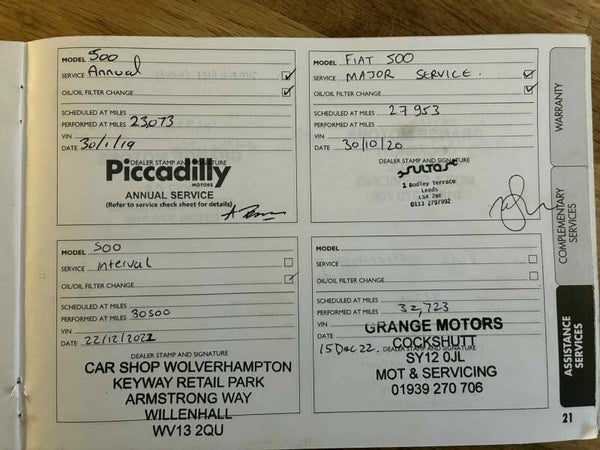 MODEL 500
SERVICE Annual
OIL/OIL FILTER CHANGE
SCHEDULED AT MILES
PERFORMED AT MILES 23,073
VIN
DATE 30/1/19
DEALER STAMP AND SIGNATURE
Piccadilly
MOTORS
ANNUAL SERVICE
(Refer to service check sheet for details)
MODEL FIAT 500
SERVICE MAJOR SERVICE.
OIL/OIL FILTER CHANGE
SCHEDULED AT MILES
PERFORMED AT MILES 27953
VIN
DATE 30/10/20
DEALER STAMP AND SIGNATURE
1 Bodley Terrace
Leeds
LS4 2BE
0113 2792992
MODEL 500
SERVICE interval
OIL/OIL FILTER CHANGE
SCHEDULED AT MILES
PERFORMED AT MILES 30500
VIN
DATE 22/12/2021
DEALER STAMP AND SIGNATURE
CAR SHOP WOLVERHAMPTON
KEYWAY RETAIL PARK
ARMSTRONG WAY
WILLENHALL
WV13 2QU
MODEL
SERVICE
OIL/OIL FILTER CHANGE
SCHEDULED AT MILES
PERFORMED AT MILES 32,723
VIN
GRANGE MOTORS
DATE 15 Dec 22.
DEALER STAMP AND SIGNATURE
COCKSHUTT
SY12 0JL
MOT & SERVICING
01939 270 706
WARRANTY
COMPLEMENTARY
SERVICES
ASSISTANCE
SERVICES
21